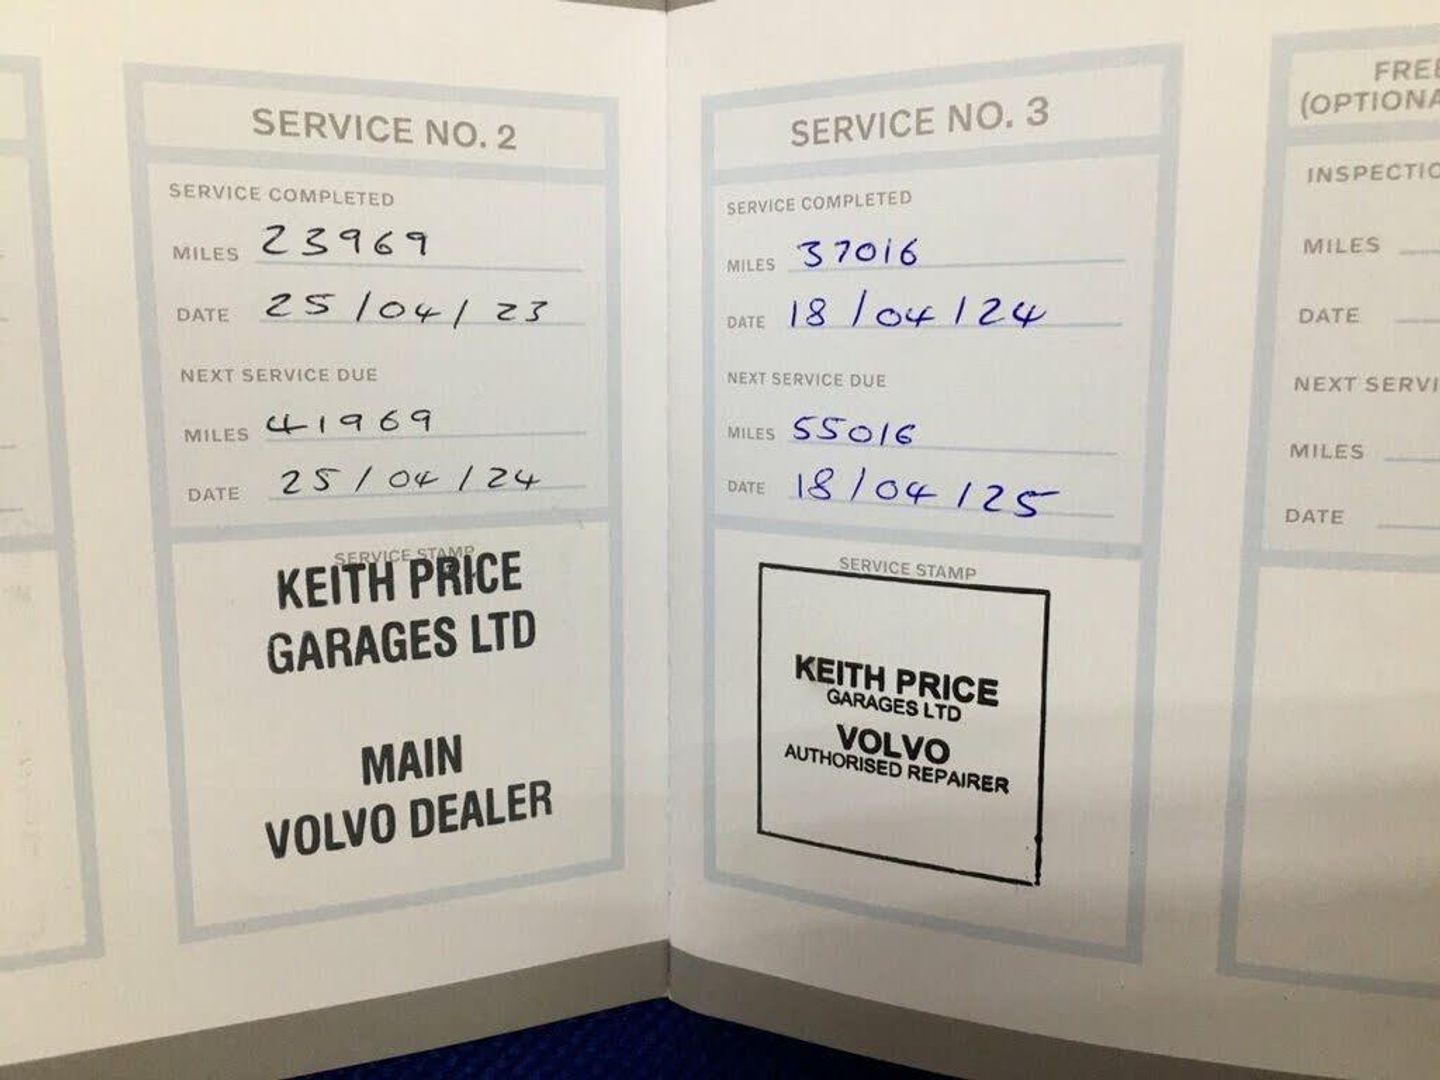 SERVICE NO. 2
SERVICE COMPLETED
MILES 23969
DATE 25/04/23
NEXT SERVICE DUE
MILES 41969
DATE 25/04/24
SERVICE STAMP
KEITH PRICE
GARAGES LTD
MAIN
VOLVO DEALER
SERVICE NO. 3
SERVICE COMPLETED
MILES 37016
DATE 18/04/24
NEXT SERVICE DUE
MILES 55016
DATE 18/04/25
SERVICE STAMP
KEITH PRICE
GARAGES LTD
VOLVO
AUTHORISED REPAIRER
MILES
DATE
MILES
DATE